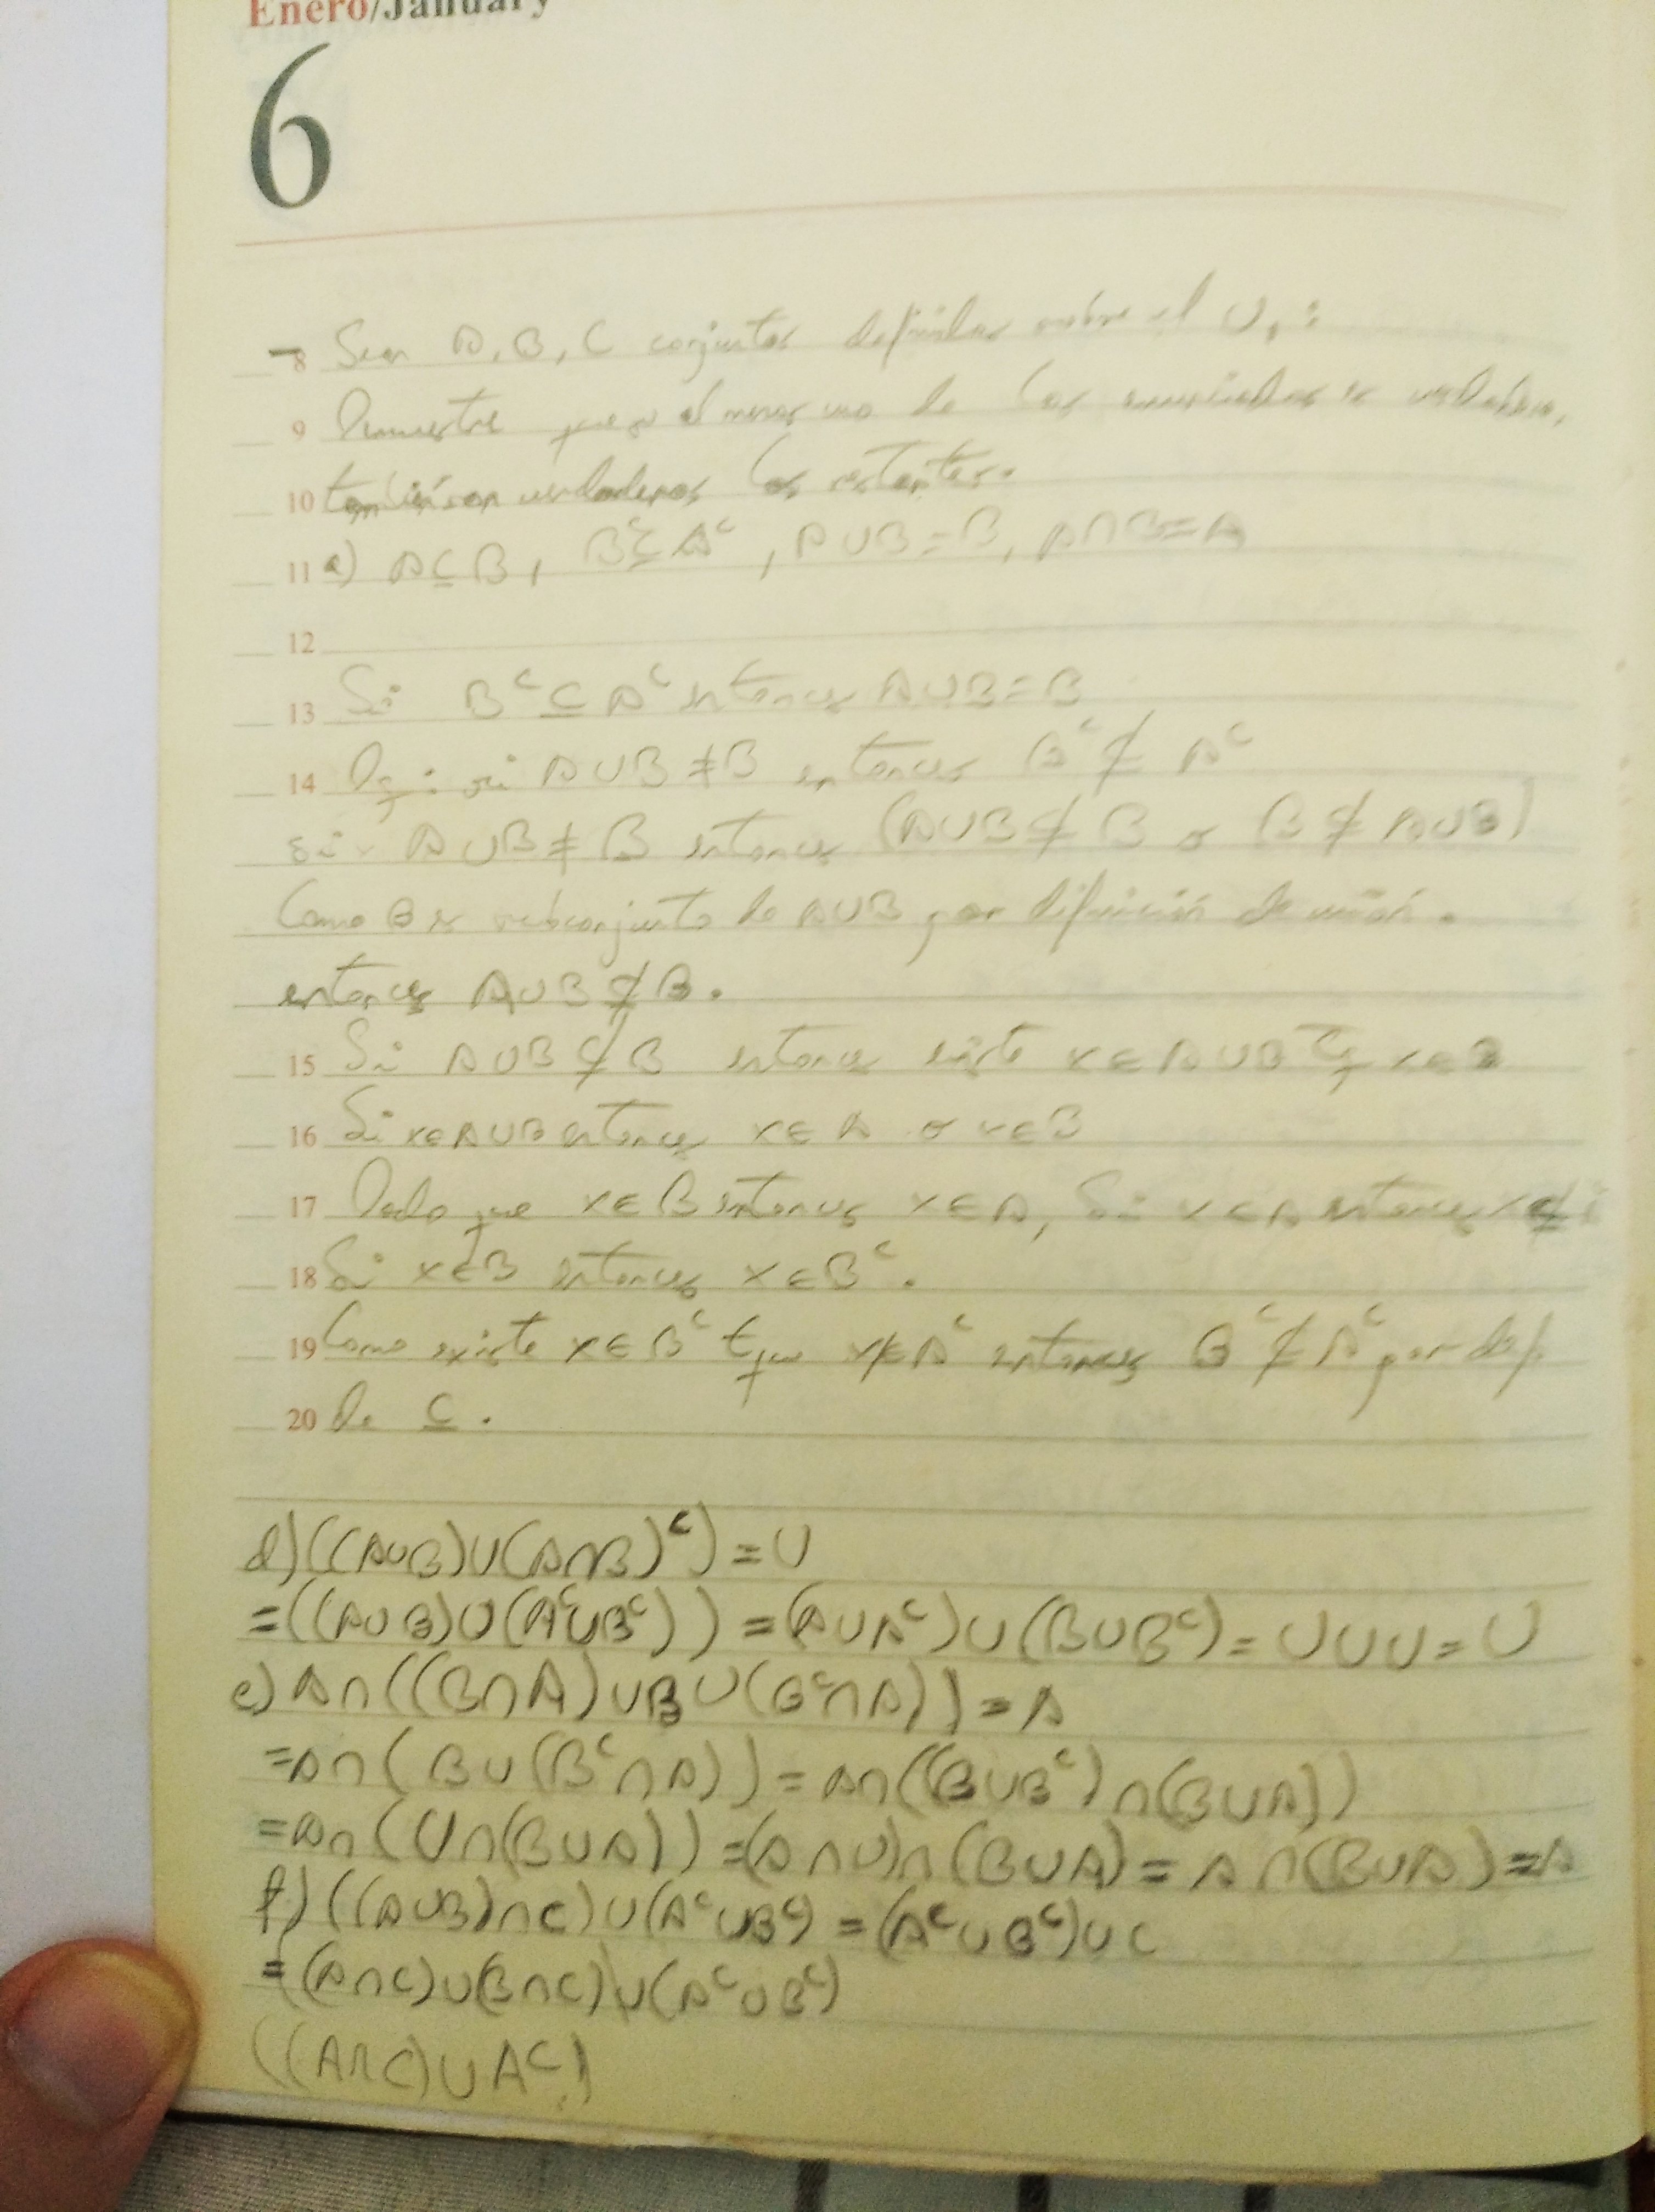 Enero/January
6
8 Sean A, B, C conjuntos definidos sobre el U, :
9 Demuestre que si al menos uno de los enunciados es verdadero,
10 también son verdaderos los restantes.
11 a) A ⊆ B, B^c ⊆ A^c, A∪B=B, A∩B=A
12
13 Si B^c ⊆ A^c entonces A∪B=B
14 Dq: si A∪B ≠ B entonces B^c ⊄ A^c
si A∪B ≠ B entonces (A∪B ⊄ B o B ⊄ A∪B)
Como B es subconjunto de A∪B por definición de unión.
entonces A∪B ⊄ B.
15 Si A∪B ⊄ B entonces existe x∈A∪B Tq x∈B
16 Si x∈A∪B entonces x∈A o x∈B
17 Dado que x∈B entonces x∈A, Si x∈A entonces x∉
18 Si x∉B entonces x∈B^c.
19 Como existe x∈B^c tq x∉A^c entonces B^c ⊄ A^c por def
20 de ⊆.
d) ((A∪B)∪(A∩B)^c) = U
=((A∪B)∪(A^c∪B^c)) = (A∪A^c)∪(B∪B^c) = U∪U = U
e) A∩((B∩A)∪B∪(B^c∩A)) = A
=A∩(B∪(B^c∩A)) = A∩((B∪B^c)∩(B∪A))
=A∩(U∩(B∪A)) =(A∩U)∩(B∪A) = A∩(B∪A) = A
f) ((A∪B)∩C)∪(A^c∪B^c) = (A^c∪B^c)∪C
= (A∩C)∪(B∩C)∪(A^c∪B^c)
((A∩C)∪A^c)